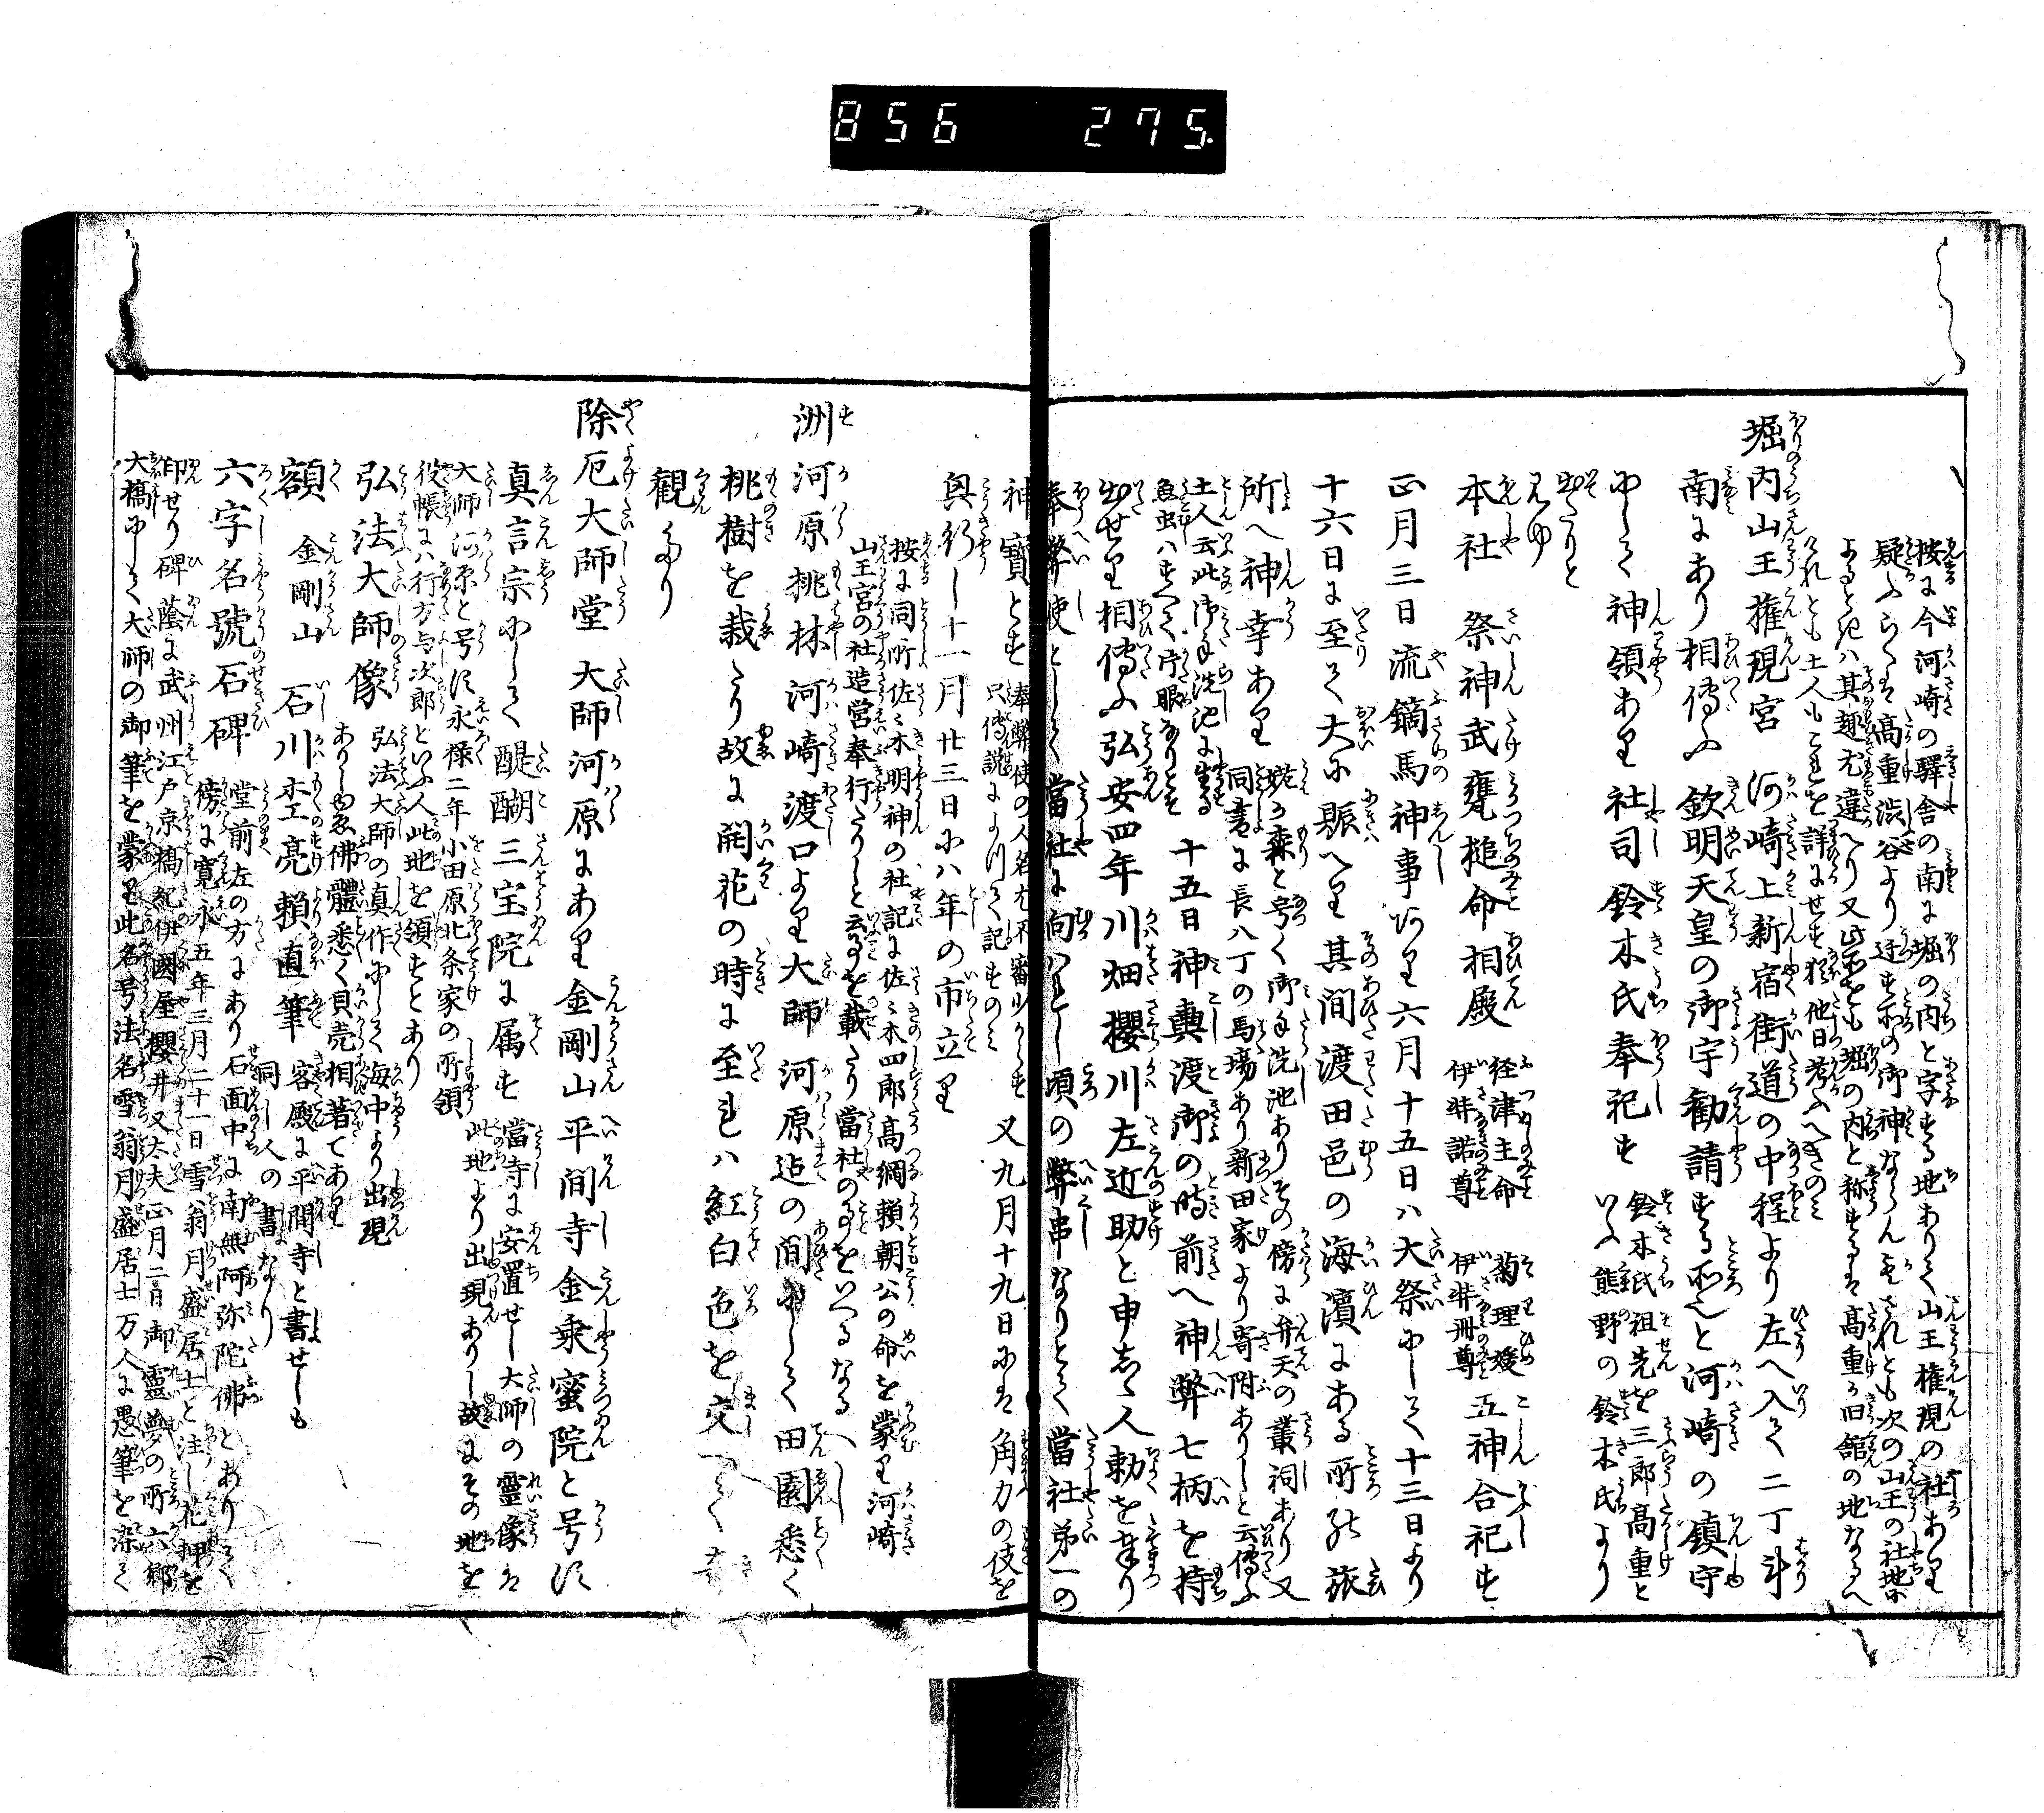 856 275
按に今河崎の驛舎の南に堀の内と字する地ありて山王権現の社あり
疑ふらくは高重渋谷より迁す所の御神ならん歟されとも次の山王の社地に
よるときハ其趣尤違へり又此所をも堀の内と称するは高重の旧館の地なるへ
けれとも土人もこれを詳にせす猶他日考ふへきのミ
堀内山王権現宮 河崎上新宿街道の中程より左へ入て二丁斗
南にあり相傳ふ欽明天皇の御宇勧請する所と河崎の鎮守
にして神領あり社司鈴木氏奉祀す 鈴木氏祖先を三郎高重と
いふ熊野の鈴木氏より
出たりと
いふ
本社 祭神武甕槌命相殿 経津主命 菊理媛
伊弉諾尊 伊弉冊尊 五神合祀す
正月三日流鏑馬神事あり六月十五日ハ大祭にして十三日より
十六日に至て大に賑へり其間渡田邑の海濵にある所の旅
所へ神幸あり 森と号く御手洗池ありその傍に弁天の叢祠あり又
同書に長八丁の馬場あり新田家より寄附ありしと云傳ふ
土人云此御手洗池に生る
魚虫ハすへて片眼なりとそ 十五日神輿渡御の時前へ神幣七柄を持
出せり相傳ふ弘安四年川畑櫻川左近助と申す人勅を奉り
奉幣使として當社に向ハれし頃の幣串なりとて當社第一の
神寶とす 奉幣使の人名尤不審少からす
只傳説によつて記すのミ 又九月十九日にハ角力の伎を
興行し十一月廿三日にハ年の市立り
按に同所佐々木明神の社記に佐々木四郎高綱頼朝公の命を蒙り河崎
山王宮の社造営奉行たりしと云事を載たり當社の事をいへるなるへし
洲河原桃林 河崎渡口より大師河原迠の間にして田園悉く
桃樹を栽たり故に開花の時に至れハ紅白色を交へて奇
觀たり
除厄大師堂 大師河原にあり金剛山平間寺金乗蜜院と号す
真言宗にして醍醐三宝院に属す 當寺に安置せし大師の靈像は
此地より出現ありし故にその地を
大師河原と号す永禄二年小田原北条家の所領
役帳にハ行方与次郎といふ人此地を領すとあり
弘法大師像 弘法大師の真作にして海中より出現
ありしゆゑ佛體悉く貝売相著てあり
額 金剛山 石川杢亮頼直筆 客殿に平間寺と書せしも
同し人の書なり
六字名號石碑 堂前左の方にあり石面中に南無阿弥陀佛とありて
傍に寛永五年三月二十一日雪翁月盛居士と注し花押を
印せり碑蔭に武州江戸京橋紀伊國屋櫻井又太夫正月二日御靈夢の所六郷
大橋にして大師の御筆を蒙り此名号法名雪翁月盛居士万人に愚筆を染て